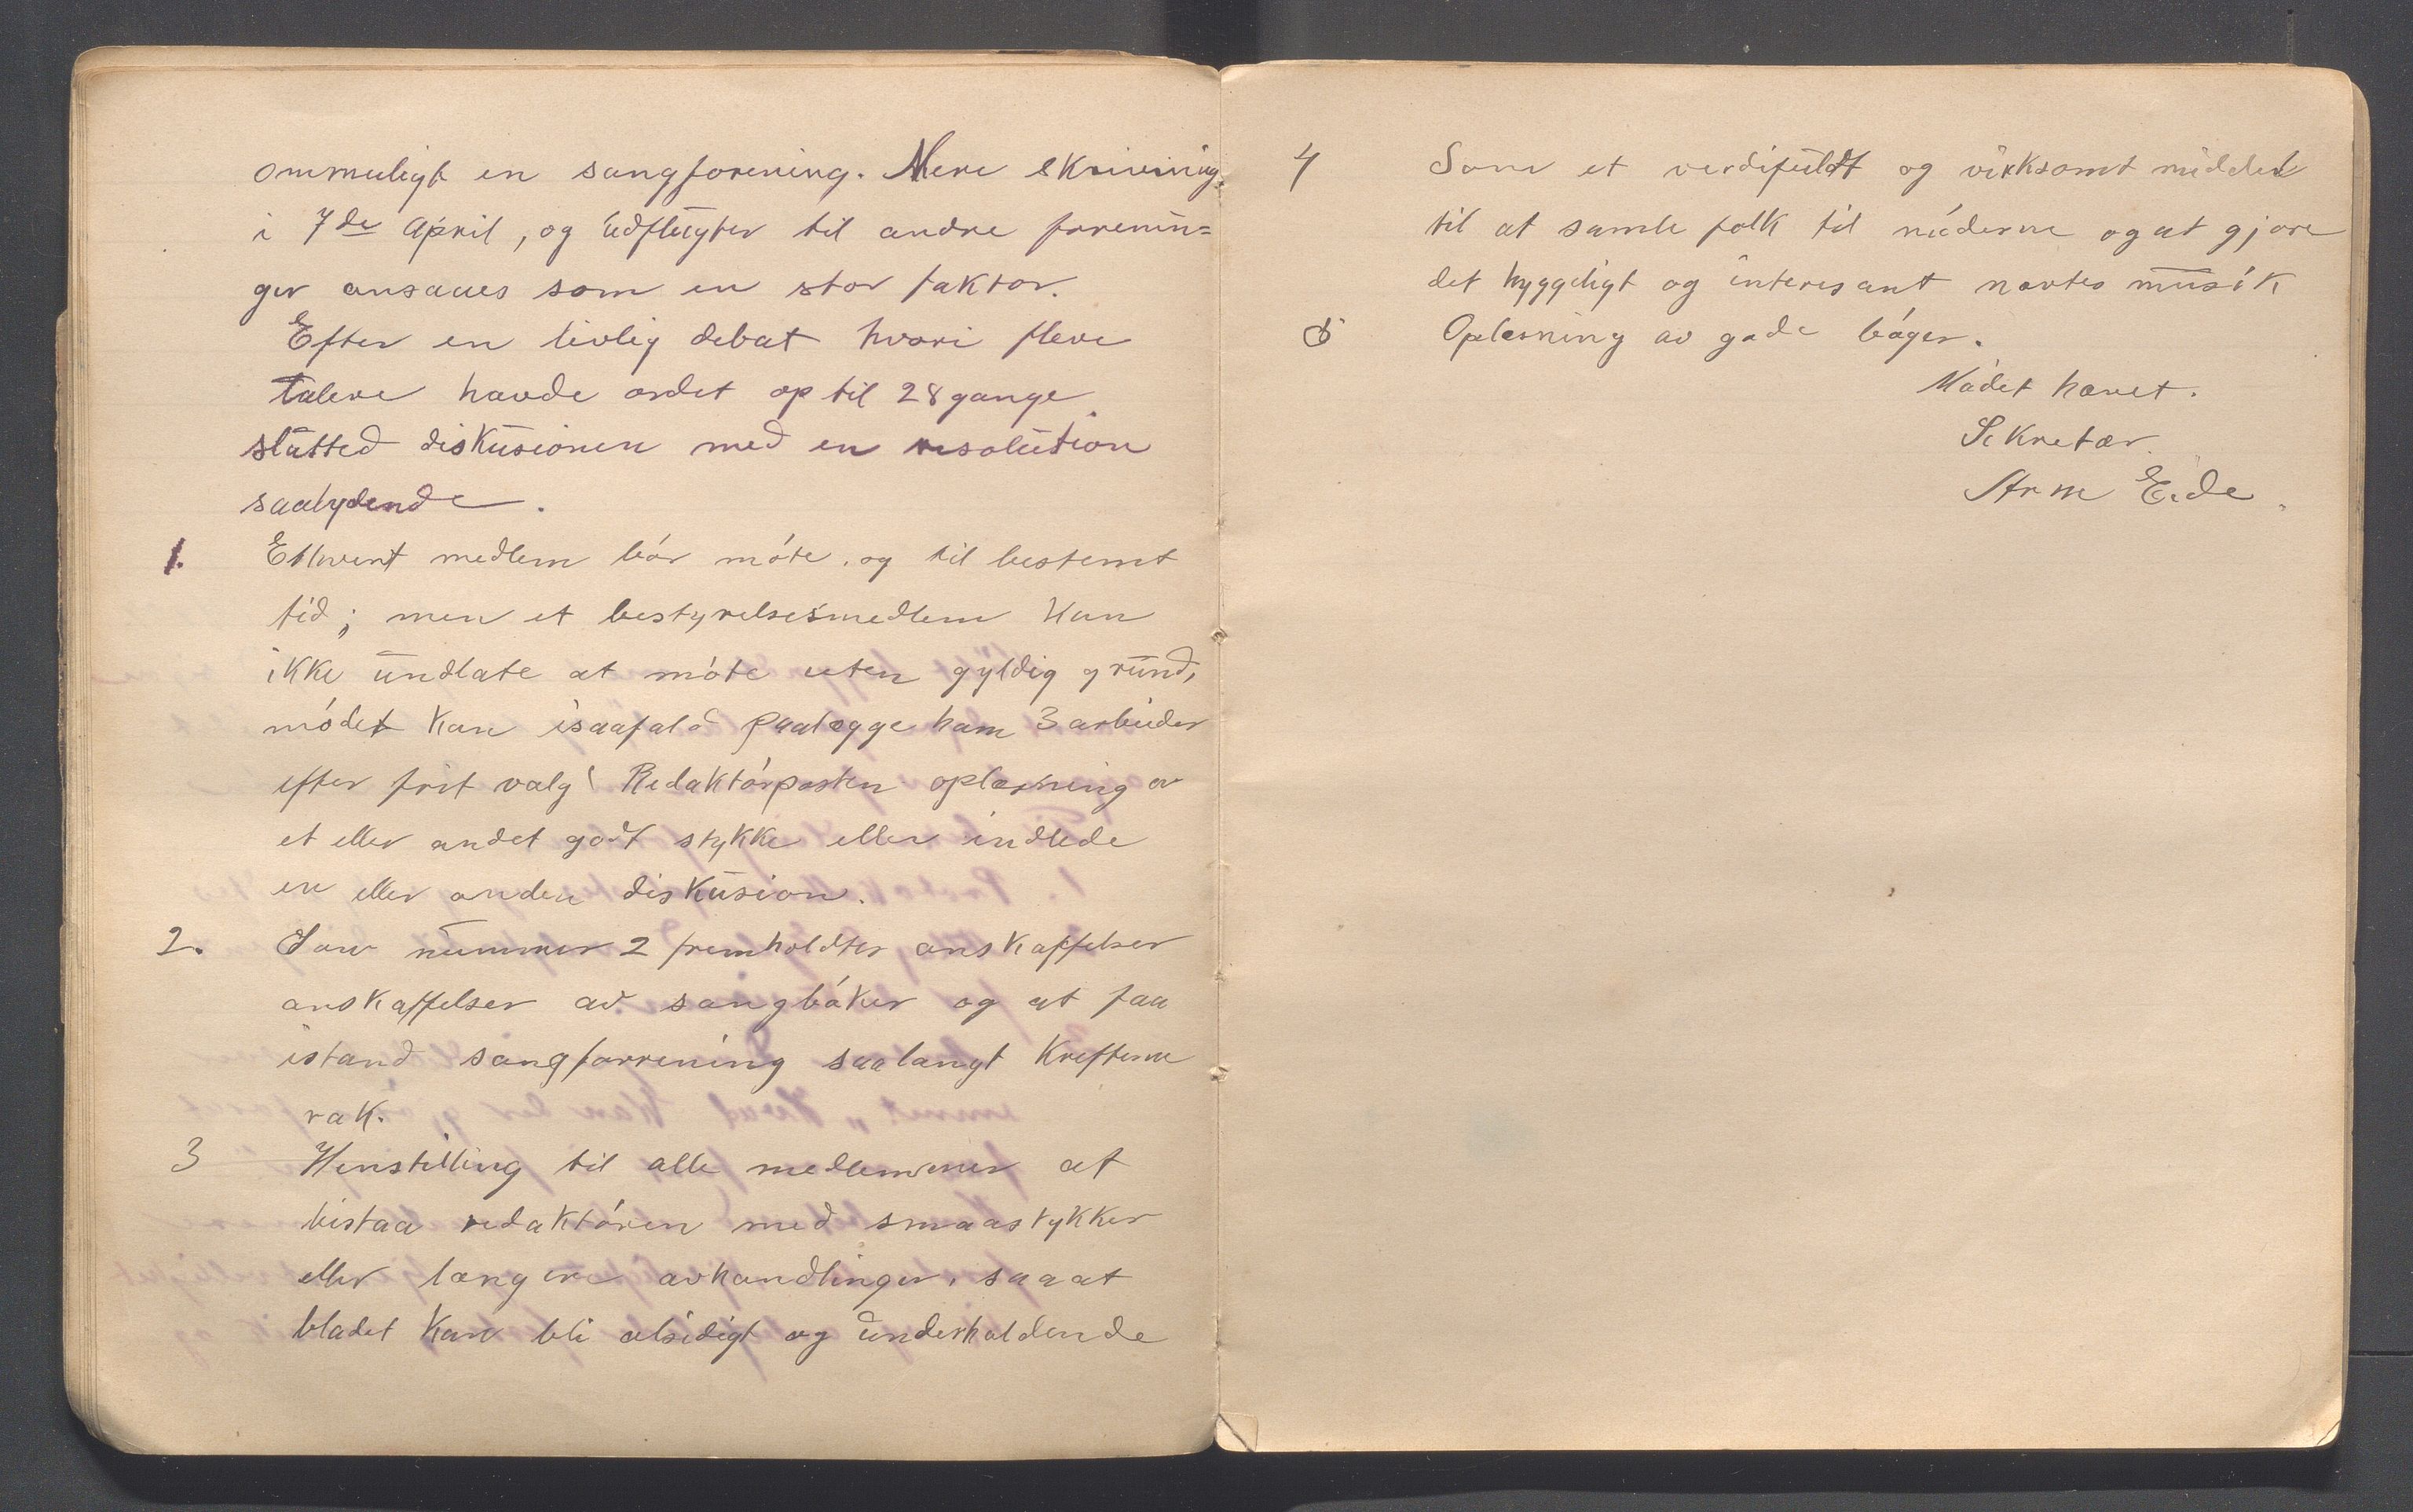 ommuligt en sangforening. Mere skrivning
i 7de April, og udflugter til andre forenin=
ger ansaaes som en stor faktor.
Efter en livlig debat hvori flere
talere havde ordet op til 28 gange
slutted diskusionen med en resolution
saalydende.
1. Ethvert medlem bór móte. og til bestemt
tid; men et bestyrelsesmedlem kan
ikke undlate at móte uten gyldig grund,
módet kan isaafald paalægge ham 3 arbeider
efter frit valg! Redaktórposten oplæsning av
et eller andet godt stykke eller indlede
en eller anden diskusion.
2. Som nummer 2 fremholdtes anskaffelser
anskaffelser av sangbóker og at faa
istand sangforrening saalangt Kræfterne
rak.
3 Henstilling til alle medlemmer at
bistaa redaktóren med smaastykker
eller længere avhandlinger, saaat
bladet kan bli alsidigt og underholdende
4 Som et verdifuldt og virksomt middel
til at samle folk til móderne og at gjøre
det hyggeligt og interesant nævtes musik
5 Oplæsning av gode bóger.
Módet hævet.
Sekretær.
Arm Eide.